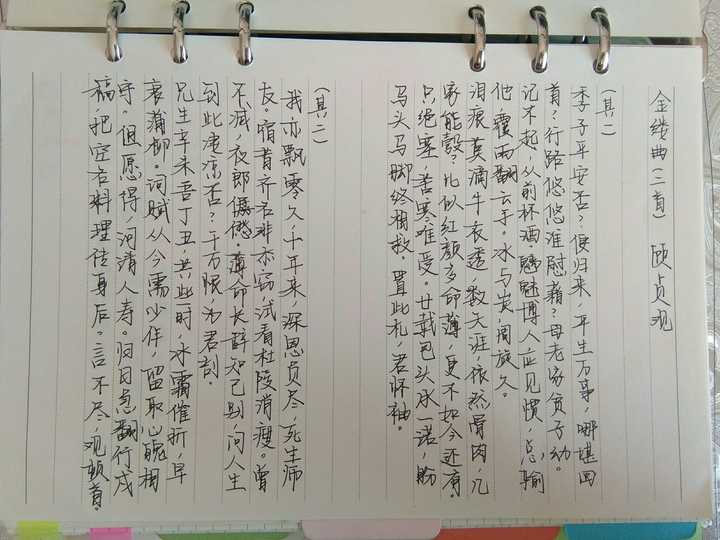 金缕曲(二首) 顾贞观
(其一)
季子平安否?便归来,平生万事,哪堪回
首?行路悠悠谁慰藉?母老家贫子幼。
记不起,从前杯酒。魑魅搏人应见惯,总输
他,覆雨翻云手。冰与炭,周旋久。
泪痕莫滴牛衣透,数天涯,依然骨肉,几
家能彀?比似红颜多命薄,更不如今还有。
只绝塞,苦寒难受。廿载包头承一诺,盼
马头马脚终相救。置此札,君怀袖。
(其二)
我亦飘零久,十年来,深恩负尽,死生师
友。宿昔齐名非忝窃,试看杜陵消瘦。曾
不减,夜郎僝僽。薄命长辞知己别,问人生
到此凄凉否?千万恨,为君剖。
兄生辛未吾丁丑,共此时,冰霜催折,早
衰蒲柳。词赋从今需少作,留取心魄相
守。但愿得,河清人寿。归日急翻行戍
稿,把空名料理传身后。言不尽,观顿首。